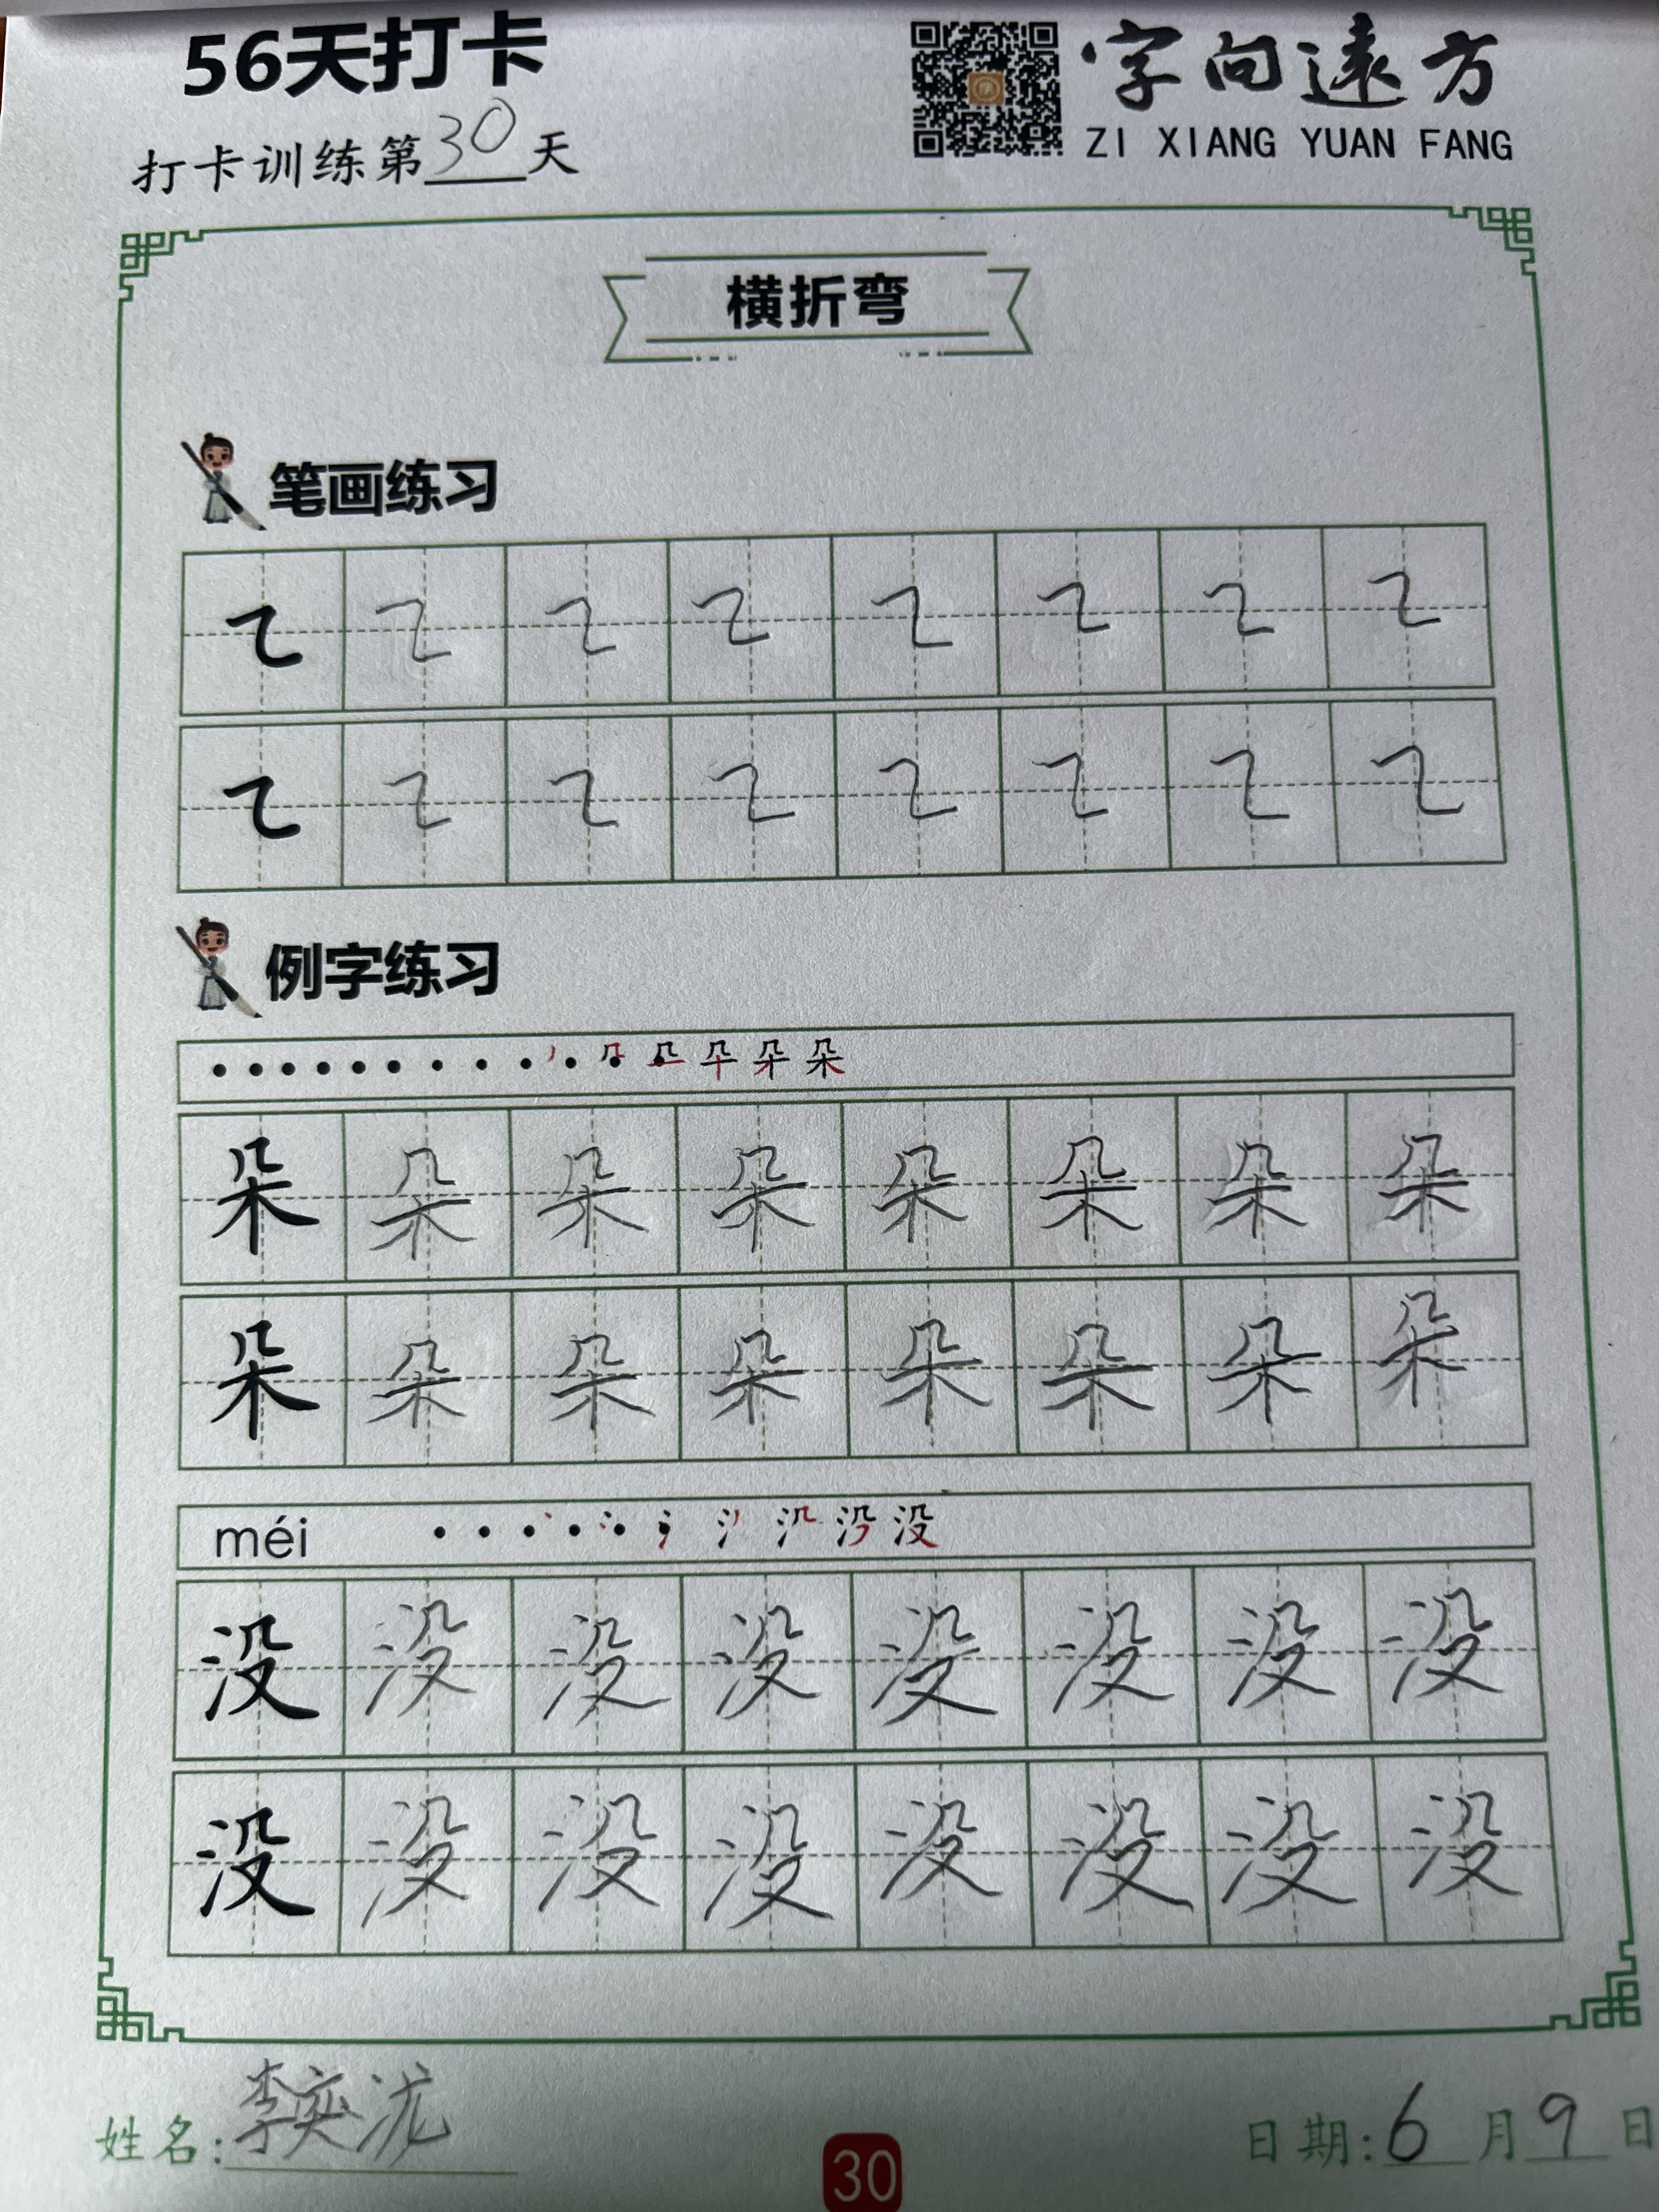 56天打卡
字向遠方
打卡训练第30天
ZI XIANG YUAN FANG
横折弯
笔画练习
例字练习
朵
朵 朵 朵 朵 朵 朵 朵 朵
朵 朵 朵 朵 朵 朵 朵 朵
méi 没
没 没 没 没 没 没 没 没
没 没 没 没 没 没 没 没
姓名:李奕泷
日期:6月9日
30